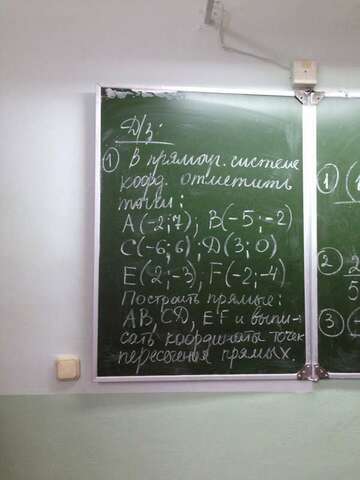 Д/з:
① В прямоуг. системе
коорд. отметить
точки:
A(-2;7); B(-5;-2)
C(-6;6); D(3;0)
E(2;-3); F(-2;-4)
Построить прямые:
AB, CD, EF и выпи-
сать координаты точек
пересечения прямых.
①(
② 2
5
③(-